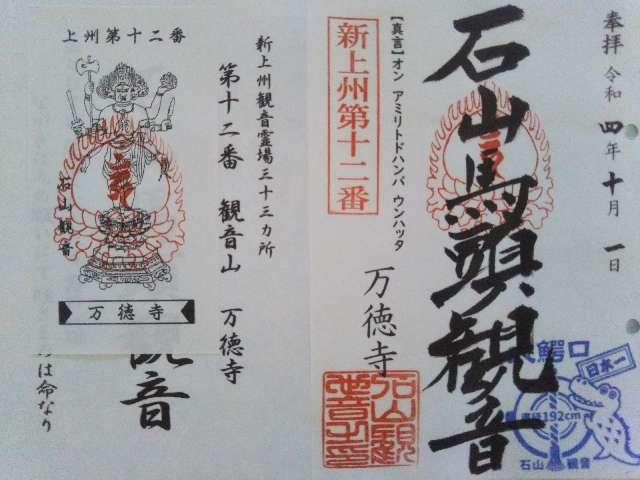 奉拝 令和四年十月一日
石山馬頭観音
【真言】オン アミリトドハンバ ウンハッタ
新上州第十二番
万徳寺
大鰐口
日本一
直径192cm
石山観音
新上州観音霊場三十三カ所
第十二番 観音山 万徳寺
上州第十二番
石山観音
万徳寺
観音
は命なり